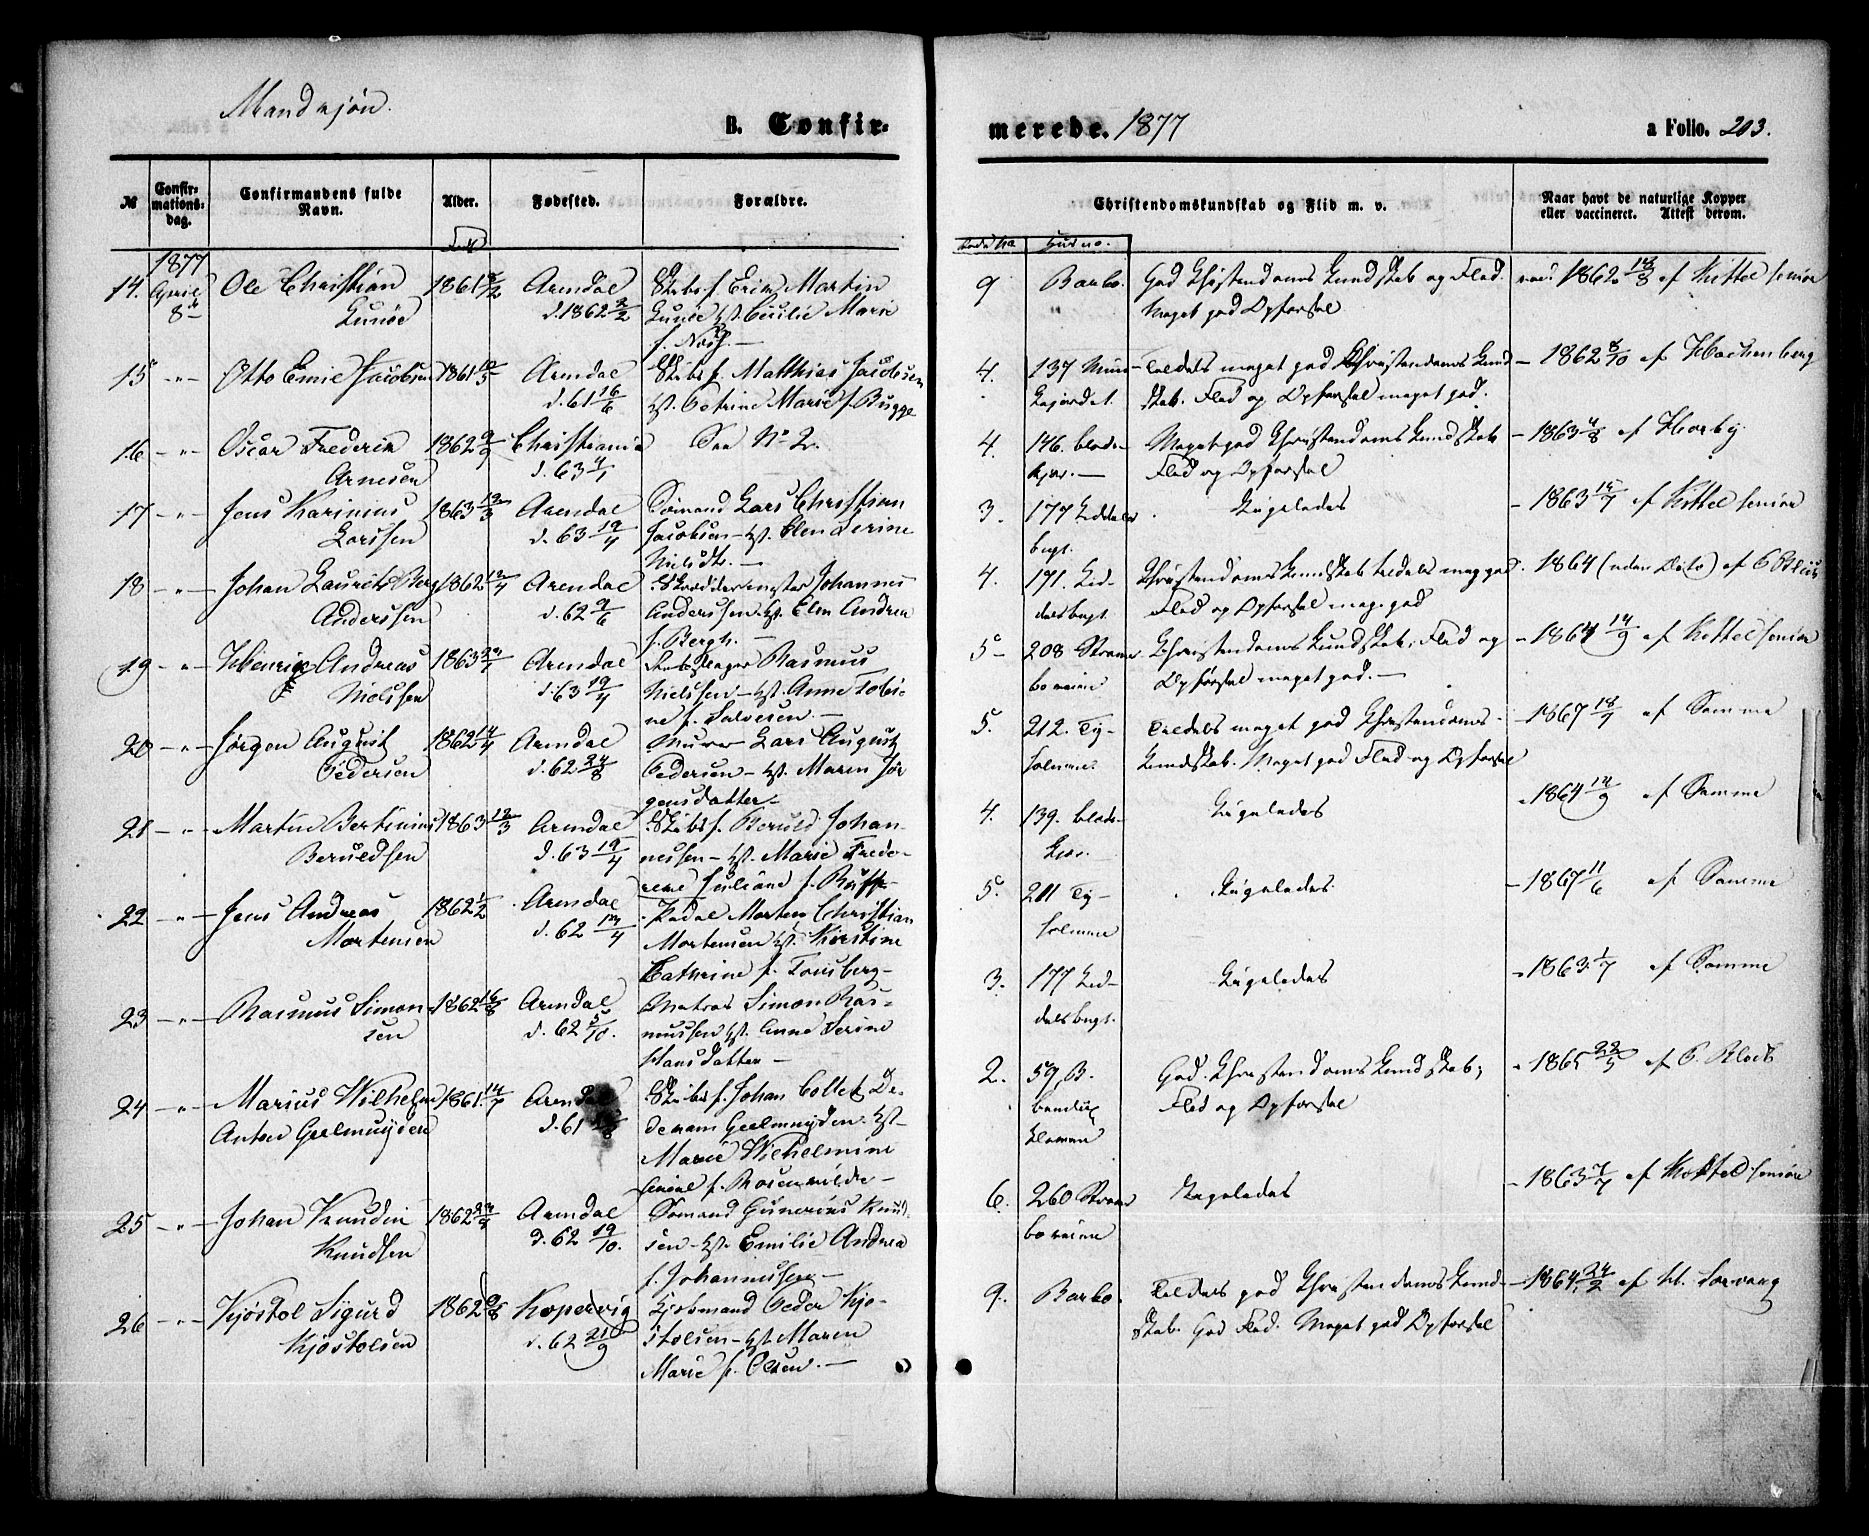 Mandkjön.
B. Confir-
merede. 1877
a Folio. 203.
№
Confir-
mations-
dag.
Confirmandens fulde
Navn.
Alder.
Fødested.
Forældre.
Christendomskundskab og Flid m. v.
Naar havt de naturlige Kopper
eller vaccineret. Attest derom.
Født
Rode No
Hus no.
1877
14. April 8de
Ole Christian
1861
Arendal
d. 1862 2/2
Skibsf. Erik Martin
Cecilie Marie
9
Barbo.
God Christendoms Kundskab og Flid.
Meget god Opførsel
vac. 1862 18/8 af Kittel senior
15 -"-
Otto Emil Jacobsen
1861
Arendal
d. 61 16/6
Skibsf. Matthias Jacobsen
Hst. Petrine Marie f. Bugge
4.
137
Tildels meget god Christendoms Kund-
skab. Flid og Opførsel meget god.
- 1862 8/10 af Hachenberg
16 -"-
Oscar Frederik
Arnesen
1862
Christiania
d. 63 4/1
See No 2.
4.
146.
Meget god Christendoms Kundskab
Flid og Opførsel
- 1863 4/8 af Horby
17 -"-
Jens Karinius
Larssen
1863 12/3
Arendal
d. 63 19/4
Sømand Lars Christian
Jacobsen - Hst. Elen Serine
Nielsdtr. -
3.
177
bugt.
Ligeledes
- 1863 af Kittel senior
18 -"-
Johan Laurits Berg
Anderssen
1862 12/4
Arendal
d. 62 9/6
Skræddermester Johannes
Anderssen - Hst. Elen Andrea
f. Bergh. -
4.
191.
dalsbugt.
Christendoms Kundskab tildels meg. god.
Flid og Opførsel meg. god
- 1864 (uden Dato) af
19 -"-
Henrik Andreas
Nielssen
1863
Arendal
d. 63 19/4
Rasmus
Nielssen - Hst. Anne Tobi-
ne f. Salvesen. -
5 -
208 Strøms-
boveien
Christendoms Kundskab, Flid og
Opførsel meget god. -
- 1864 14/9 af Kittel senior
20 -"-
Jørgen August
Pedersen
1862 14/4
Arendal
d. 62 24/8
Murer Lars August
Pedersen - Hst. Maren Jør
gensdatter -
5.
212. Ty-
holmen.
Tildels meget god Christendoms-
Kundskab. Meget god Flid og Opførsel
- 1867 18/7 af Samme
21 -"-
Martin Bertinius
Beruldsen
1863 12/3
Arendal
d. 63 19/4
Skibsf. Beruld Johan-
nessen - Hst. Marie Frede-
4.
139.
Ligeledes
- 1864 14/9 af Samme
22 -"-
Jens Andreas
Mortensen
1862 1/2
Arendal
d. 62
Morten Christian
Mortensen Hst. Kirstine
Cathrine f. Tønsberg -
5.
211 Ty-
holmen
Ligeledes.
- 1867 11/6 af Samme
23 -"-
Rasmus Simon-
sen
1862 16/8
Arendal
d. 62 5/10.
Matros Simon Ras-
mussen Hst. Anne Serine
Hansdatter -
3.
177
dalsbugt.
Ligeledes
- 1863 1/7 af Samme
24 -"-
Marius Wilhelm
Anton Geelmuyden
1861 14/7
Arendal
d. 61
Skibsf. Johan Collet De-
denam Geelmuyden. Hst.
Marie Wilhelmine
f. Rosenvilde -
2.
59, B.
God Christendoms Kundskab,
Flid og Opførsel
- 1865 22/5 af
25 -"-
Johan Knudin
Knudsen
1862
Arendal
d. 62 19/10.
Sømand Gunerius Knud-
sen - Hst. Emilie Andrea
f. Johannessen -
6.
260 Strøms
boveien
Ligeledes
- 1863 7/7 af Kittel senior
26 -"-
Kjøstol Sigurd
Kjøstolsen
1862
Kopervig
d. 62 21/9
Kjøbmand Peder Kjø-
stolsen - Hst. Maren
Marie f. Olsen. -
9.
Barbo.
Tildels god Christendoms Kund-
skab. God Flid. Meget god Opførsel
- 1864 24/2 af